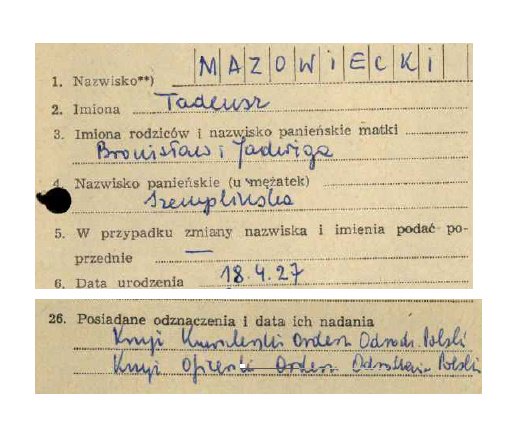 1. Nazwisko**) MAZOWIECKI
2. Imiona Tadeusz
3. Imiona rodziców i nazwisko panieńskie matki
Bronisław i Jadwiga
4. Nazwisko panieńskie (u mężatek)
Szemplińska
5. W przypadku zmiany nazwiska i imienia podać po-
przednie —
6. Data urodzenia 18.4.27
26. Posiadane odznaczenia i data ich nadania
Krzyż Kawalerski Orderu Odrodz. Polski
Krzyż Oficerski Orderu Odrodzenia Polski